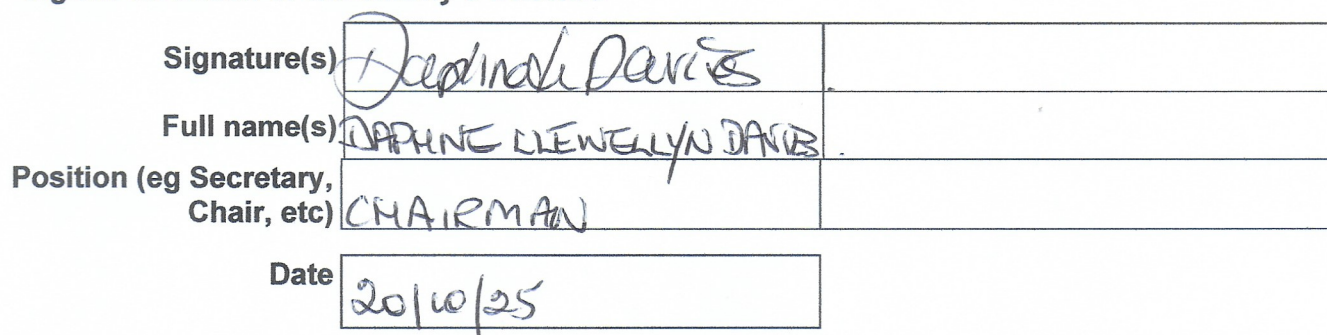 Signature(s) Daphne Ll Davies
Full name(s) DAPHNE LLEWELLYN DAVIES
Position (eg Secretary,
Chair, etc) CHAIRMAN
Date 20/10/25